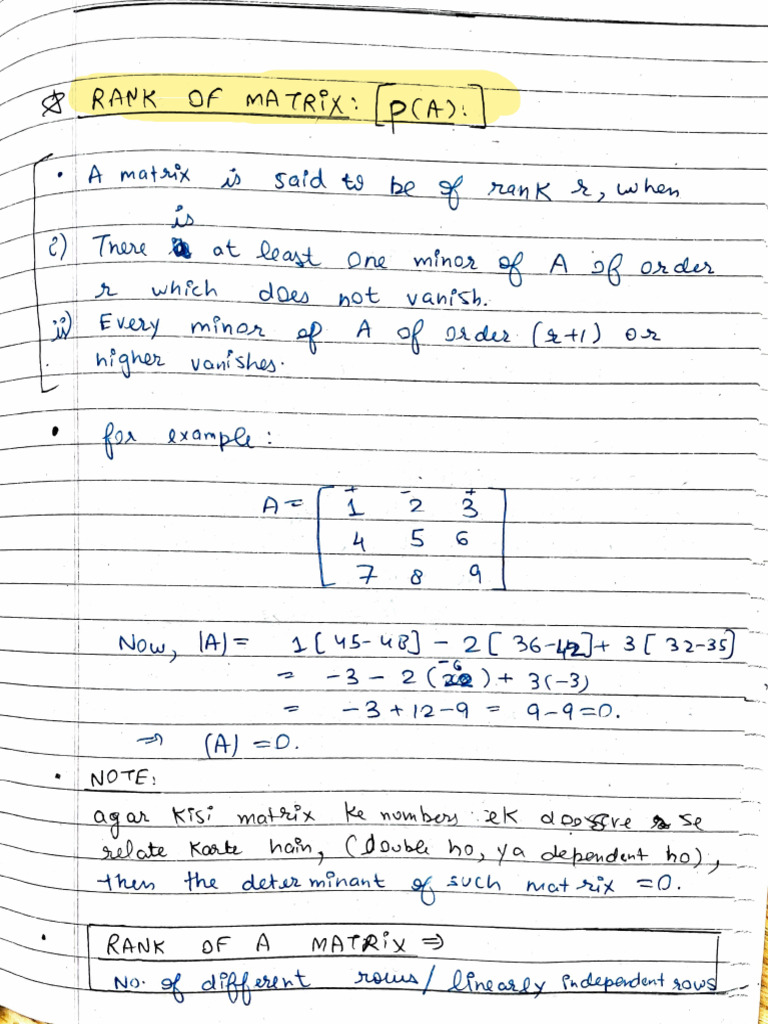 RANK OF MATRIX: [P(A):]
• A matrix is said to be of rank r, when
is
i) There at least one minor of A of order
r which does not vanish.
ii) Every minor of A of order (r+1) or
higher vanishes.
• for example:
A = [ 1 2 3
4 5 6
7 8 9 ]
Now, |A| = 1[45-48] - 2[36-42] + 3[32-35]
= -3 - 2(-6) + 3(-3)
= -3+12-9 = 9-9=0.
⇒ (A) = 0.
• NOTE:
agar kisi matrix ke numbers ek doosre se
relate karte hain, (double ho, ya dependent ho),
then the determinant of such matrix =0.
• RANK OF A MATRIX ⇒
No. of different rows/linearly independent rows